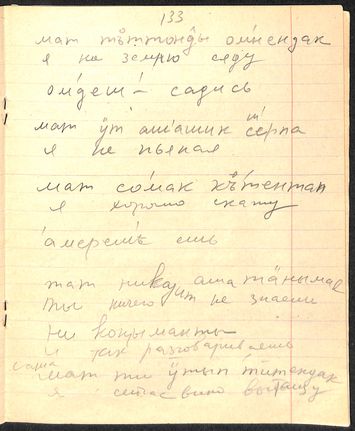 133
мат тъ̊ттонды омнендак
я на землю сяду
омдеш – садись
мат ӱт ашашик
я не пьяная
мат сомак къ̊тентап
я хорошо скажу
амереш ешь
тат никаит аша танымал
ты ничего не знаешь
ни копыманты
и так разговариваешь
мат ти ӱтып
я сейчас вино вытащу